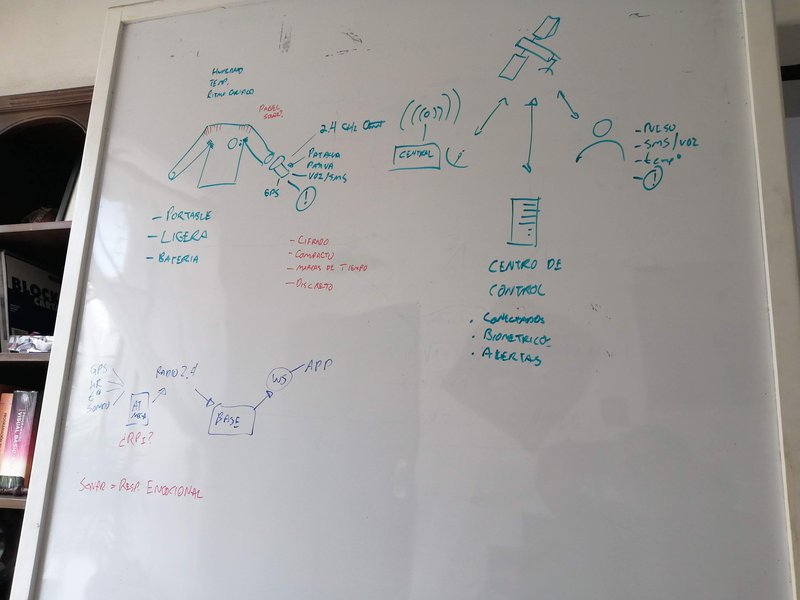 HUMEDAD
TEMP.
RITMO CARDIACO
PANEL
SOLAR?
2.4 GHz
PANTALLA
VOZ/SMS
GPS
!
CENTRAL
- PULSO
- SMS/VOZ
- temp°
- !
- PORTABLE
- LIGERA
- BATERIA
- CIFRADO
- COMPACTO
- MARCAS DE TIEMPO
- DISCRETO
CENTRO DE
CONTROL
• CONECTADOS
• BIOMETRICOS
• ALERTAS
GPS
HR
t°
SONIDO
AT
MEGA
¿RPI?
RADIO 2.4
BASE
WS
APP
= RESP. EMOCIONAL
BLOCK
VISUAL BASIC